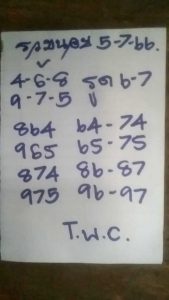 รวยนอย 5-7-66.
4-6-8 รูด 6-7
9-7-5
864 64-74
965 65-75
874 86-87
975 96-97
T.W.C.